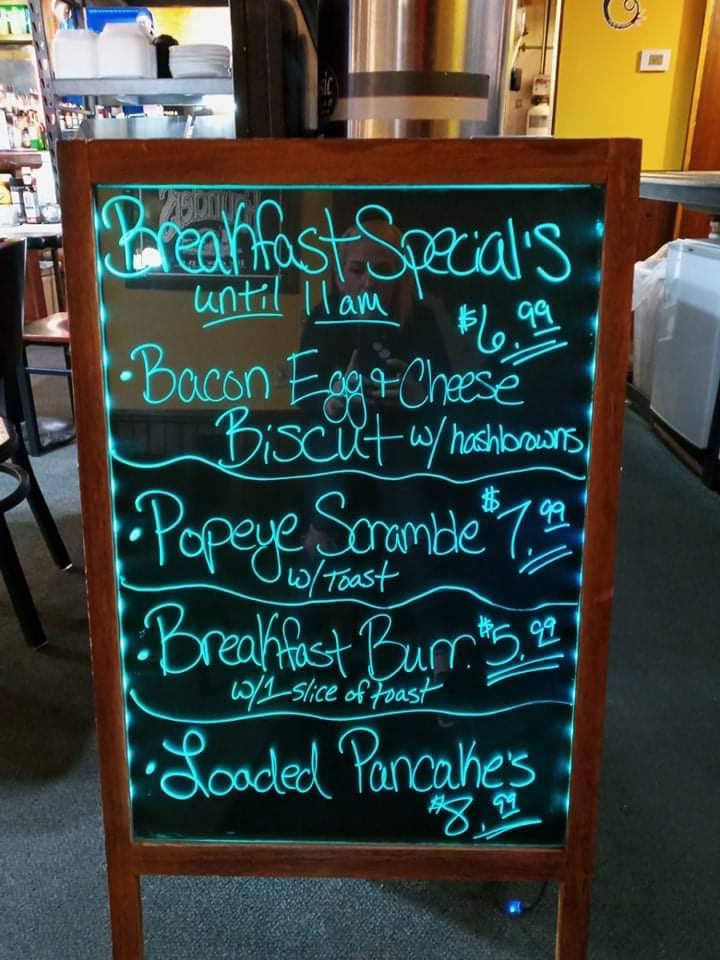 Breakfast Special's
until 11am
$6.99
• Bacon Egg & Cheese
Biscut w/ hashbrowns
• Popeye Scramble $7.99
w/ Toast
• Breakfast Burr. $5.99
w/1 slice of toast
• Loaded Pancake's
$8.99